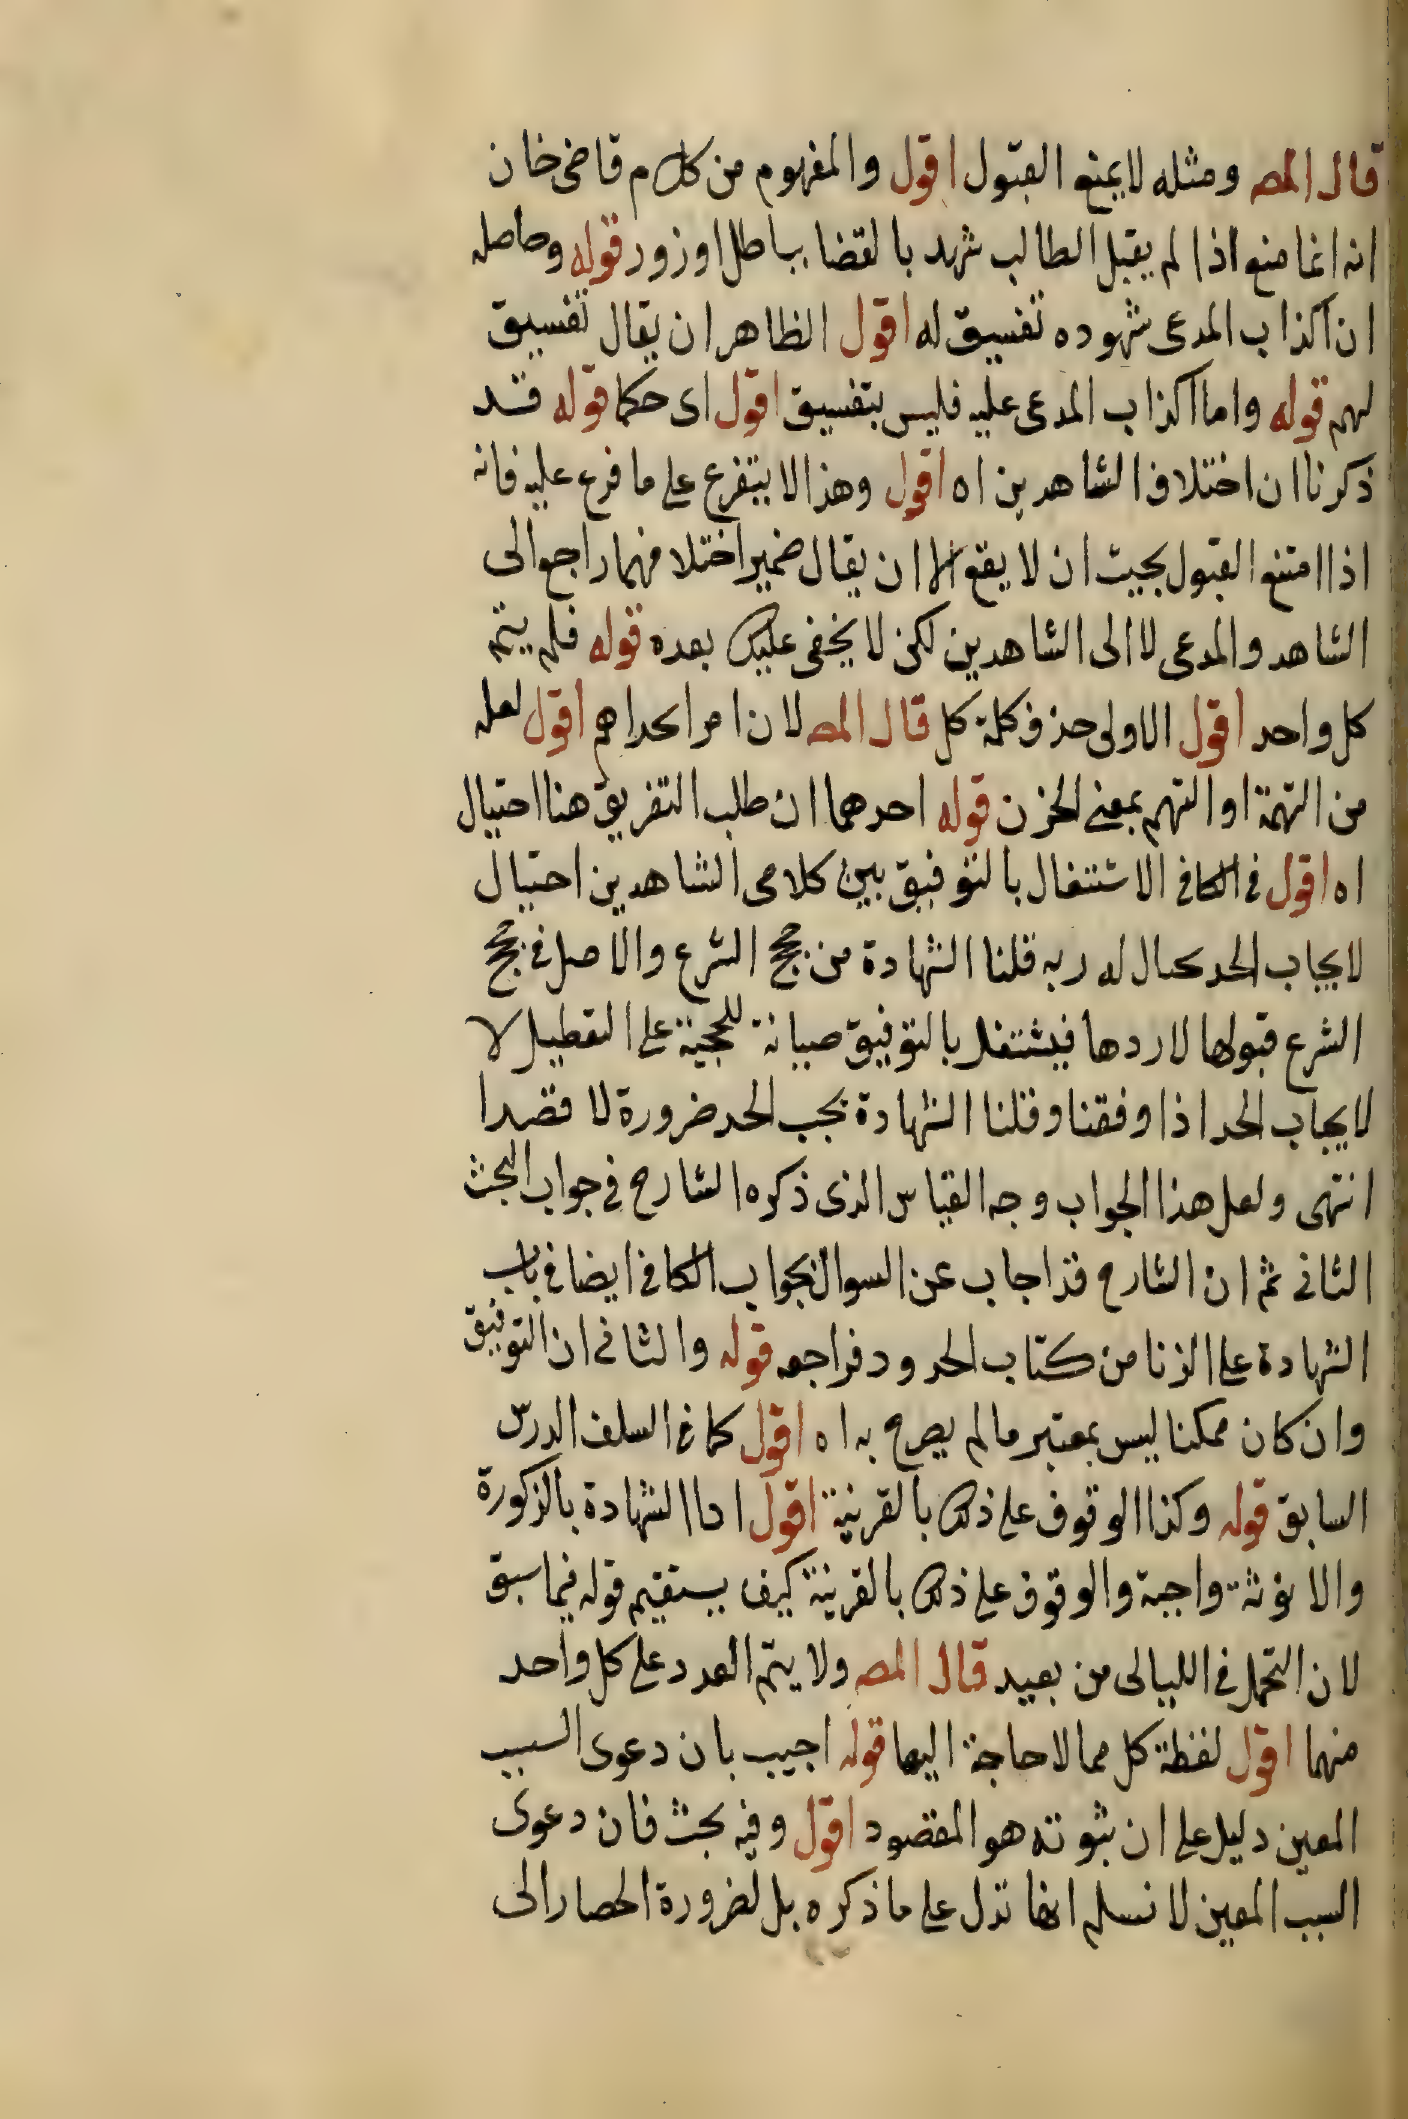 قال المص ومثله لا يمنع القبول اقول والمفهوم من كلام قاضى خان
انه انما منع اذا لم يقبل الطالب شهد بالقضا بباطل او زور قوله وحاصله
ان اكذاب المدعى شهوده تفسيق له اقول الظاهر ان يقال تفسيق
لهم قوله واما اكذاب المدعى عليه فليس بتفسيق اقول اى حكما قوله قد
ذكرنا ان اختلاف الشاهدين اه اقول وهذا لا يتفرع على ما فرع عليه فانه
اذا امتنع القبول بحيث ان لا يقع الا ان يقال ضمير اختلافهما راجع الى
الشاهد والمدعى لا الى الشاهدين لكن لا يخفى عليك بعده قوله فلم يتم
كل واحد اقول الاولى حذف كلمة كل قال المص لان امر الحد اهم اقول لعله
من التهمة او التهم بمعنى الحزن قوله احدهما ان طلب التفريق هنا احتيال
اه اقول فى الكافى الاشتغال بالتوفيق بين كلامى الشاهدين احتيال
لايجاب الحد يحتال لدربه قلنا الشهادة من حجج الشرع والاصل فى حجج
الشرع قبولها لا ردها فيشتغل بالتوفيق صيانة للحجية على التعطيل لا
لايجاب الحد اذا وفقنا وقلنا الشهادة يجب الحد ضرورة لا قصدا
انتهى ولعل هذا الجواب وجه القياس الذى ذكره الشارح فى جواب البحث
الثانى ثم ان الشارح قد اجاب عن السوال بجواب الكافى ايضا فى باب
الشهادة على الزنا من كتاب الحدود فراجعه قوله والثانى ان التوفيق
وان كان ممكنا ليس بمعتبر ما لم يصرح به اه اقول كما فى السلف الدرس
السابق قوله وكذا الوقوف على ذلك بالقرينة اقول اداا الشهادة بالذكورة
والانوثة واجبة والوقوف على ذلك بالقرينة كيف يستقيم قوله فيما سبق
لان التحمل فى الليالى من بعيد قال المص ولا يتم العدد على كل واحد
منهما اقول لفظة كل مما لا حاجة اليها قوله اجيب بان دعوى السبب
المعين دليل على ان ثبوته هو المقصود اقول وفيه بحث فان دعوى
السبب المعين لا نسلم انها تدل على ما ذكره بل لضرورة الحصار الى